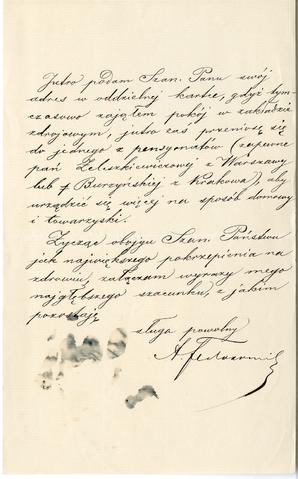 Jutro podam Szan. Panu swój
adres w oddzielnej kartce, gdyż tym-
czasowo zająłem pokój w zakładzie
zdrojowym, jutro zaś przeniosę się
do jednego z pensyonatów (zapewne
pań Zeleszkiewiczowej z Warszawy
lub Burzyńskiej z Krakowa), aby
urządzić się więcej na sposób domowy
i towarzyski.
Życząc obojgu Szan. Państwu
jak największego pokrzepienia na
zdrowiu, załączam wyrazy mego
najgłębszego szacunku, z jakim
pozostaję
sługa powolny
A.